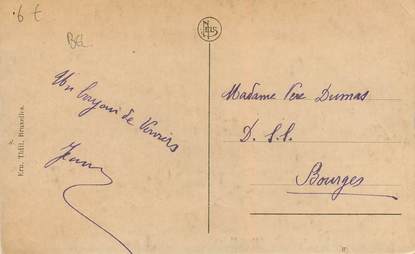 9 €
BEL
Un bonjour de Verviers
Jean
Ern. Thill, Bruxelles.
NELS
Madame Vve Dumas
D. S. S.
Bourges